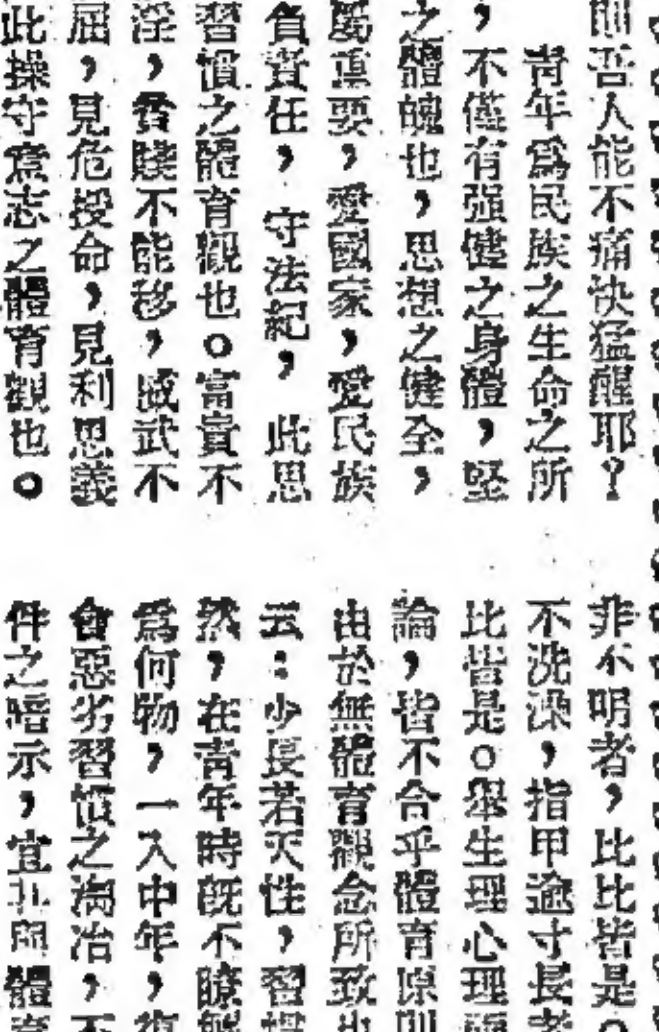 則吾人能不痛快猛醒耶？
青年爲民族之生命之所
，不僅有强健之身體，堅
之體魄也，思想之健全，
屬重要，愛國家，愛民族
負責任，守法紀，此思
習慣之體育觀也。富貴不
淫，貧賤不能移，威武不
屈，見危授命，見利思義
此操守意志之體育觀也。
非不明者，比比皆是。
不洗澡，指甲逾寸長者
比皆是。舉生理心理
論，皆不合乎體育原則
由於無體育觀念所致也
云：少長若天性，習慣
然，在青年時既不瞭解
爲何物，一入中年，復
會惡劣習慣之淘冶，不
件之暗示，宜其與體育